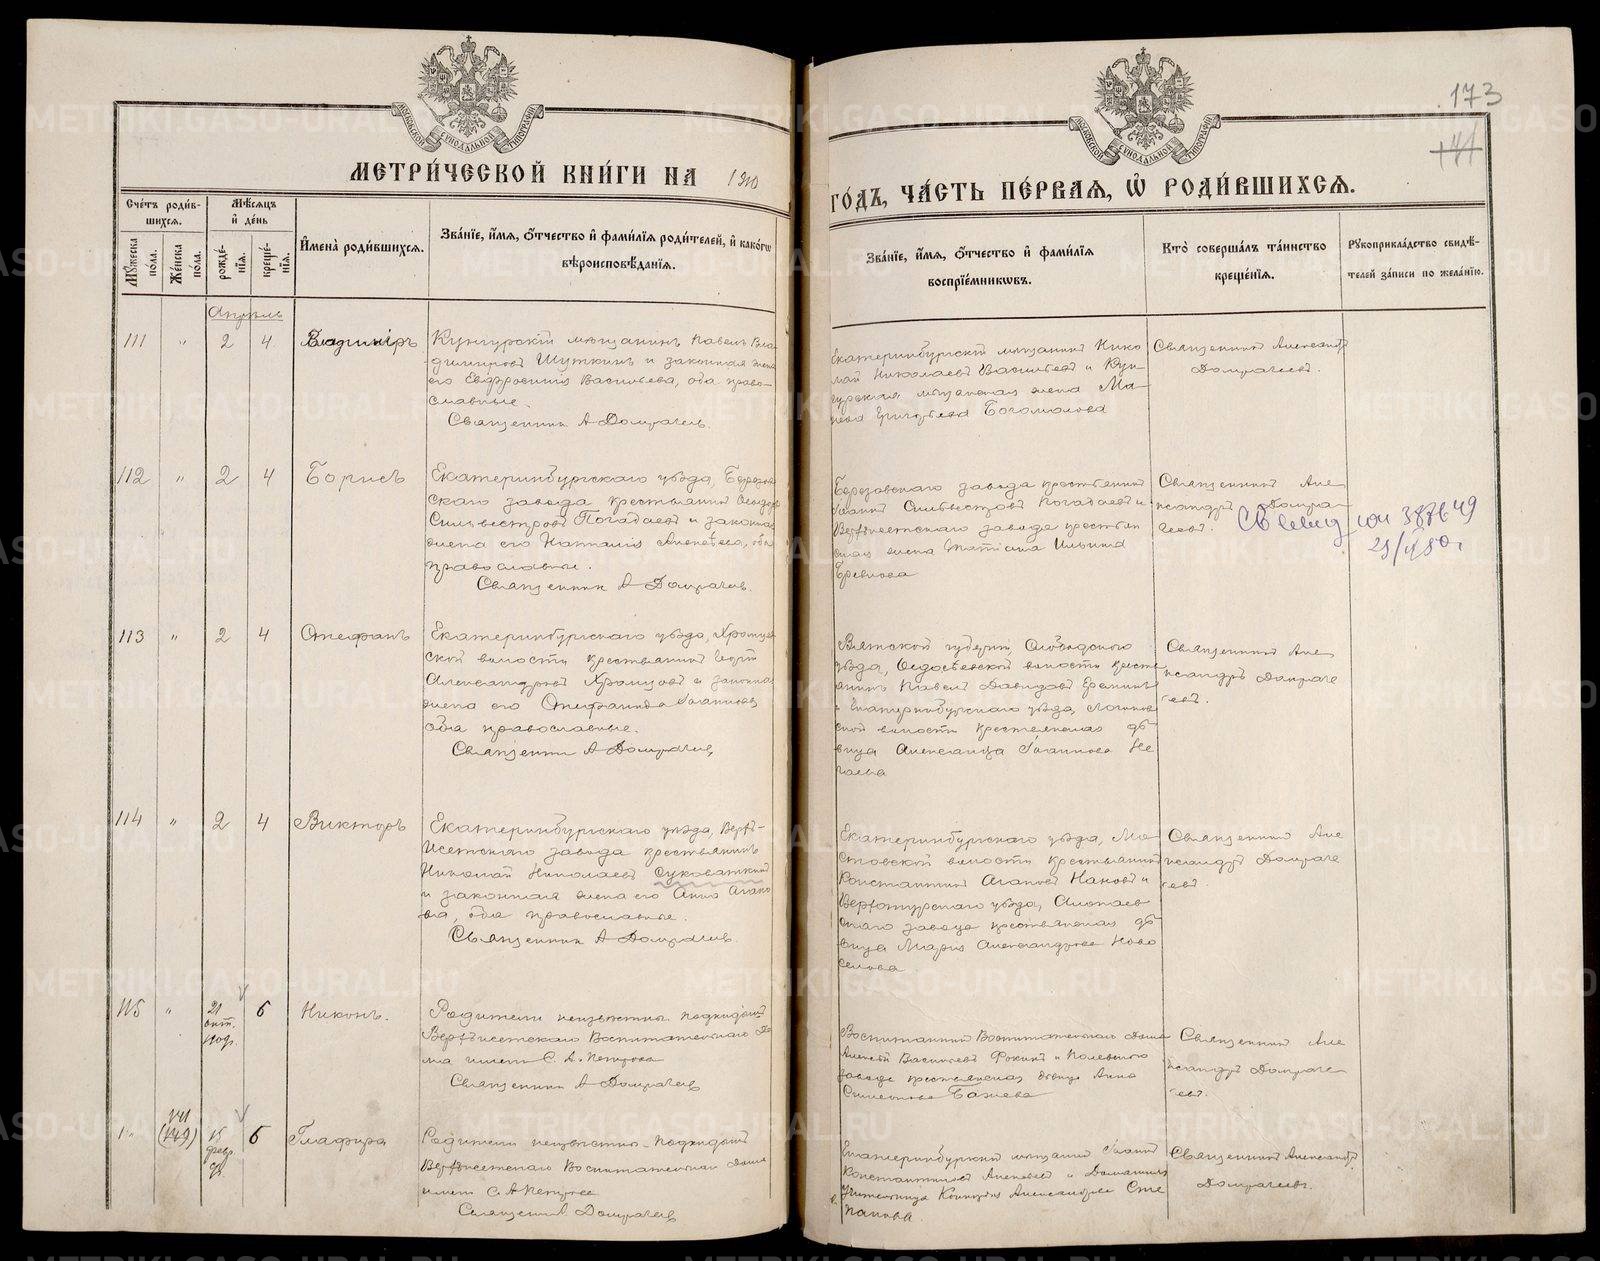 173
МЕТРИ́ЧЕСКОЙ КНИ́ГИ НА 1910 ГО́ДЪ, ЧА́СТЬ ПЕ́РВАЯ, Ѽ РОДИ́ВШИХСЯ.
МОСКОВСКОЙ СѴНОДАЛЬНОЙ ТИПОГРАФІИ
МОСКОВСКОЙ СѴНОДАЛЬНОЙ ТИПОГРАФІИ
Сче́тъ роди́в-
шихся.
Мꙋ́жеска
по́ла.
Же́нска
по́ла.
Мѣ́сяцъ
и҆ де́нь
рожде́-
нїѧ.
креще́-
нїѧ.
И҆мена̀ роди́вшихся.
Зва́нїе, и҆́мѧ, ѻ҆́тчество и҆ фами́лїѧ роди́телей, и҆ како́гѡ
вѣроисповѣ́данїѧ.
Зва́нїе, и҆́мѧ, ѻ҆́тчество и҆ фами́лїѧ
воспрїе́мникѡвъ.
Кто̀ соверша́лъ та́инство
креще́нїѧ.
Рꙋкоприкла́дство свидѣ́-
телей за́писи по жела́нїю.
Апрель
111 " 2 4 Владиміръ
Кунгурскій мѣщанинъ Павелъ Вла-
димировъ Шуткинъ и законная жена
его Евфросинія Васильева, оба право-
славные.
Священник А Домрачев.
Екатеринбургскій мѣщанинъ Нико
лай Николаевъ Васильевъ и Кун-
гурская мѣщанская жена Ма-
Григорьева Богомолова
Священникъ Александръ
Домрачеевъ.
112 " 2 4 Борисъ
Екатеринбургскаго уѣзда, Березов
скаго завода крестьянинъ
Сильвестровъ Погадаевъ и законная
жена его Наталія Алексѣева, оба
православные.
Священник А Домрачев.
Березовскаго завода крестьянинъ
Іоаннъ Сильвестровъ Погадаевъ и
Верхъисетскаго завода крестьян
ская жена Татіана Ильина
Священникъ Але
ксандръ Домра-
чеевъ.
113 " 2 4 Стефанъ
Екатеринбургскаго уѣзда,
ской волости крестьянинъ
Александровъ Храмцовъ и законная
жена его Стефанида
оба православные.
Священник А Домрачев
Вятской губерніи, Слободского
уѣзда, Ѳедосѣевской волости кресть
янинъ Павелъ Давидовъ Ереминъ
и Екатеринбургскаго уѣзда,
ской волости крестьянская дѣ-
вица Александра Іоаннова
Священникъ Але
ксандръ Домраче
евъ.
114 " 2 4 Викторъ
Екатеринбургскаго уѣзда, Верхъ-
Исетскаго завода крестьянинъ
Николай Николаевъ Суковаткинъ
и законная жена его Анна Агапо
ва, оба православные.
Священник А Домрачев.
Екатеринбургскаго уѣзда, Мо
стовской волости крестьянинъ
Константинъ Агаповъ Пановъ и
Верхотурскаго уѣзда, Алапаев
скаго завода крестьянская дѣ-
вица Марія Александрова Ново
селова
Священникъ Але
ксандръ Домраче
евъ.
115 " 21 6 Никонъ.
Родители неизвѣстны. Подкидышъ
Верхъисетскаго Воспитательнаго До
ма имени С. А. Петрова
Священник А Домрачев
Воспитанникъ Воспитательнаго Дома
Алексѣй Васильевъ Фокинъ и Полевского
завода крестьянская дѣвица Анна
Симеонова Бажева
Священникъ Але
ксандръ Домраче
евъ.
(149) 15 февр. 6 Глафира
Родители неизвѣстны. Подкидышъ
Верхъисетскаго Воспитательнаго Дома
имени С. А Петрова
Священник А. Домрачев
Екатеринбургскій мѣщанинъ Іоаннъ
Константиновъ Алексѣевъ и Домашняя
Учительница Клавдія Александрова Сте
панова.
Священникъ Александръ
Домрачеевъ.